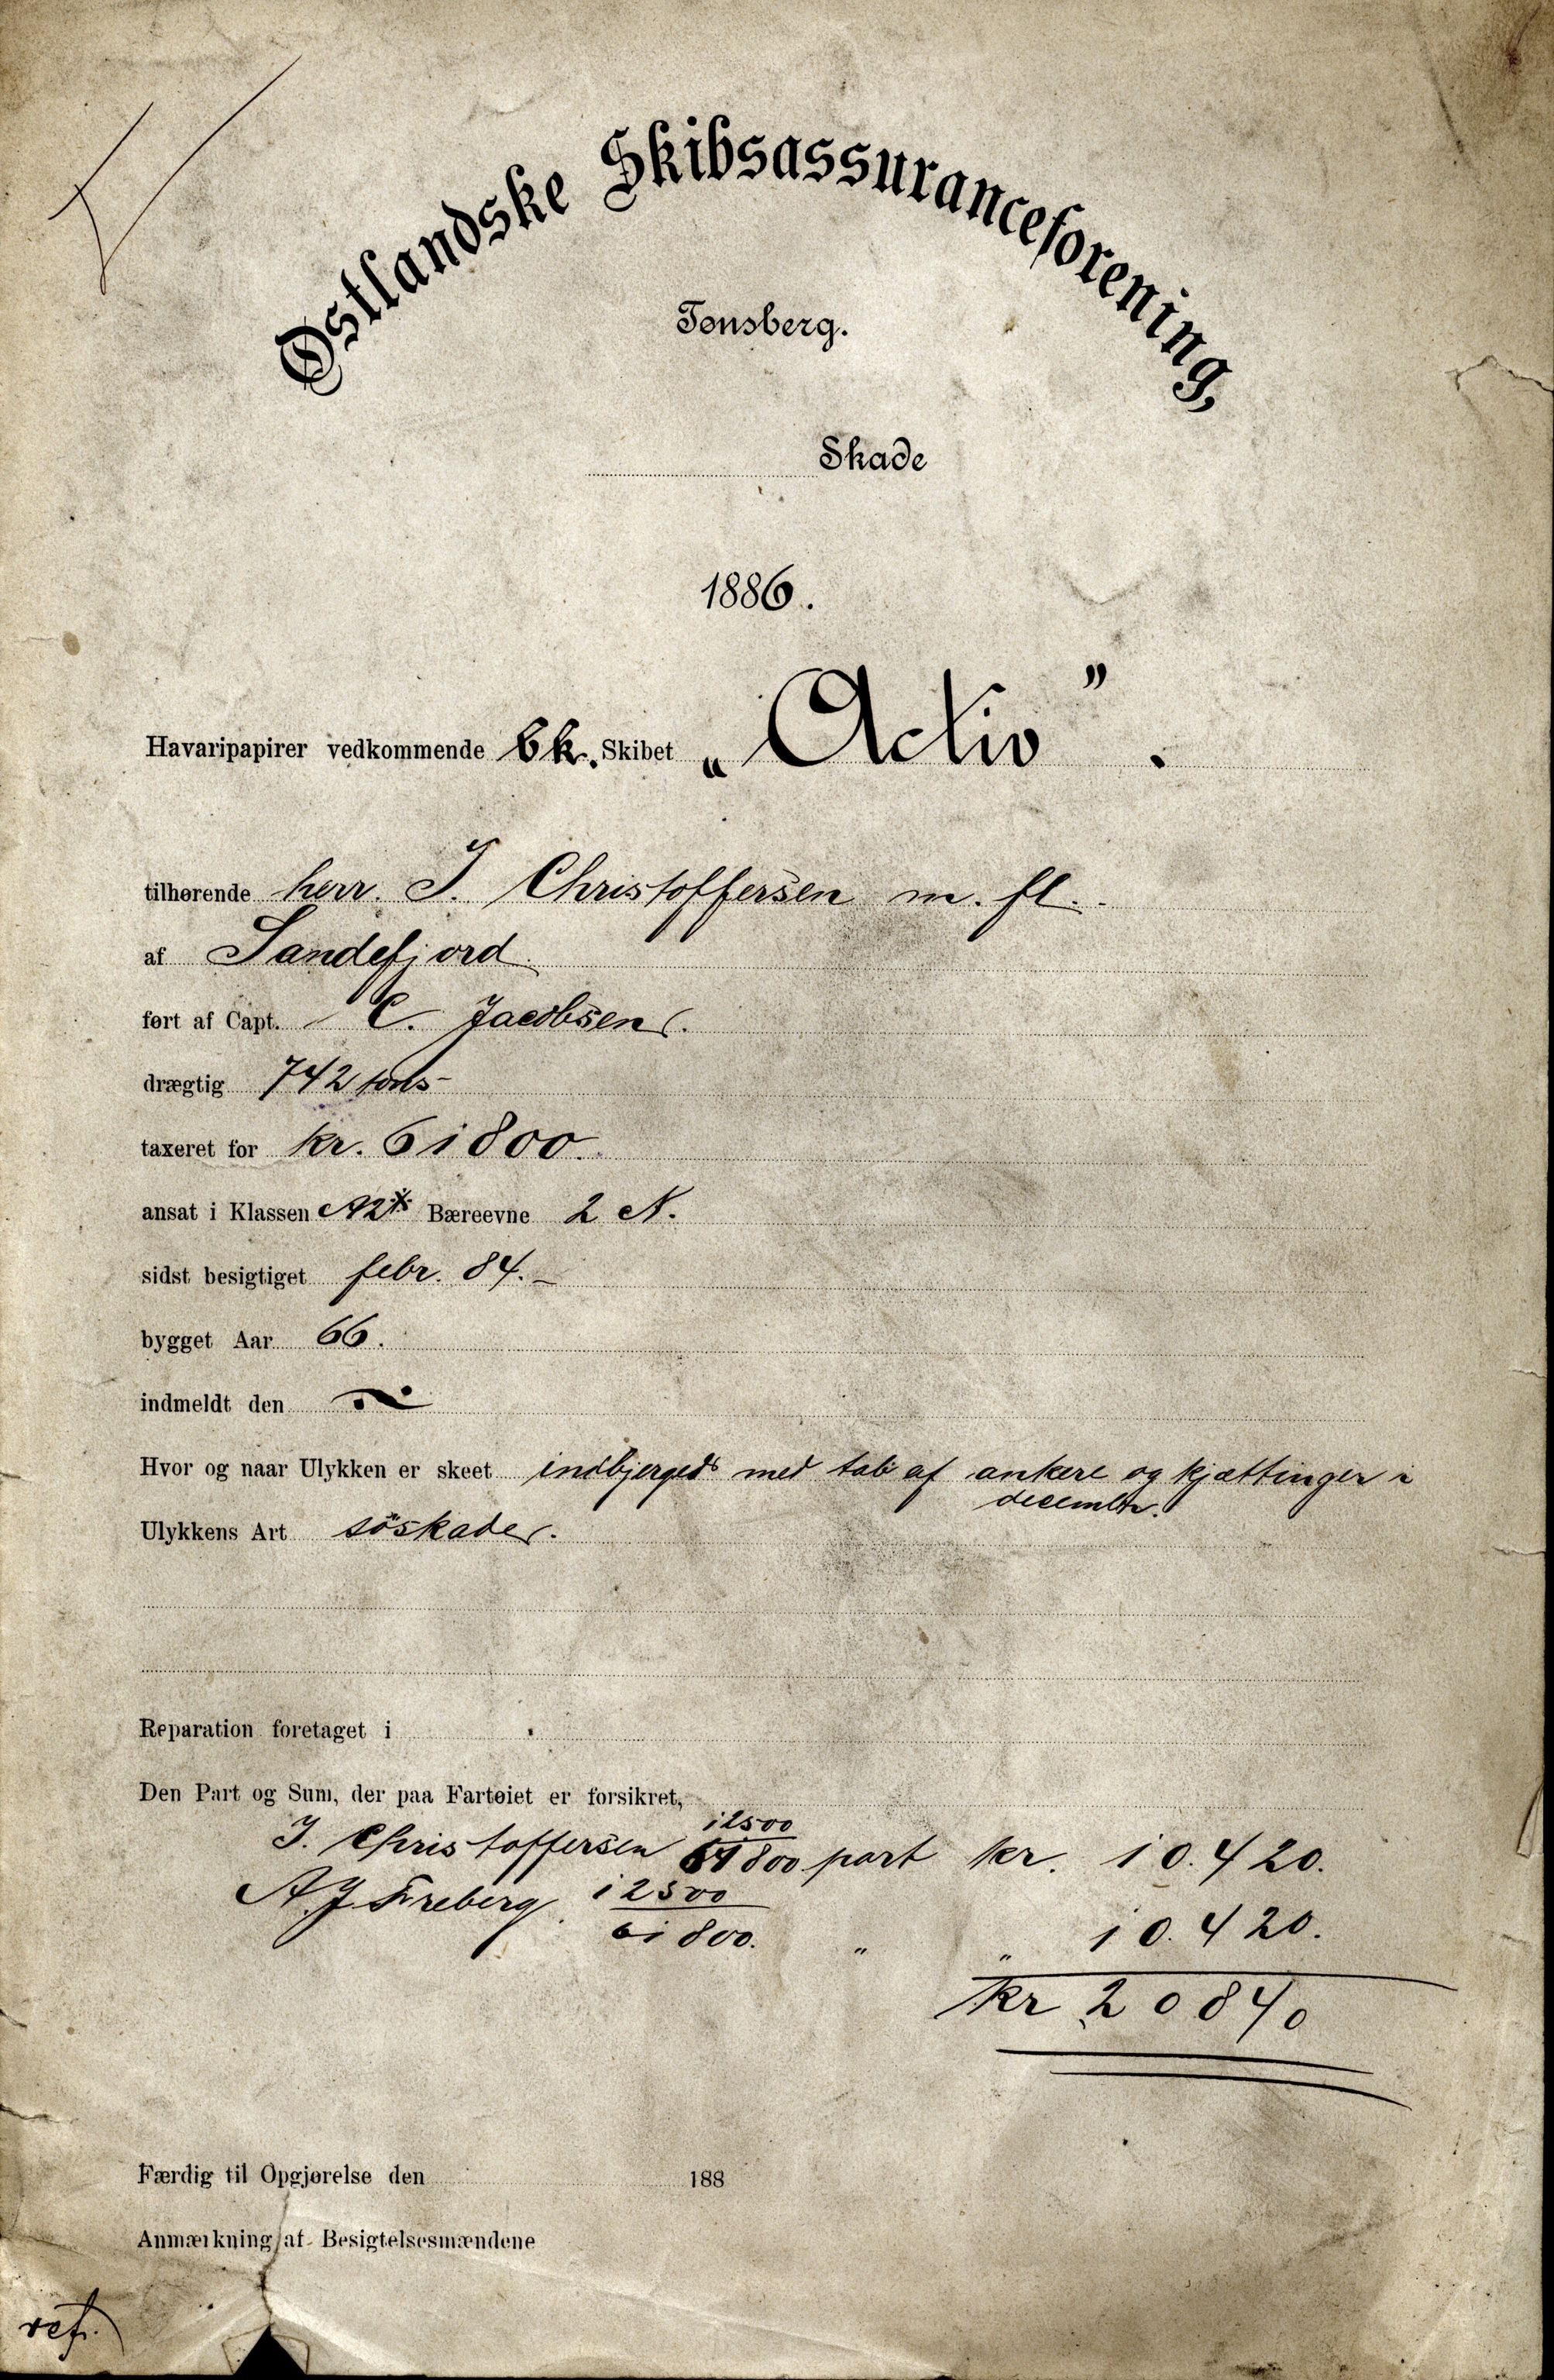 Østlandske Skibsassuranceforening,
Tønsberg.
Skade
1886.
Havaripapirer vedkommende bk. Skibet „Activ”.
tilhørende herr. J. Christoffersen m. fl.
af Sandefjord
ført af Capt. C. Jacobsen.
drægtig 742 tons
taxeret for kr. 61800.
ansat i Klassen A2* Bæreevne 2 N.
sidst besigtiget febr. 84.
bygget Aar 66.
indmeldt den
Hvor og naar Ulykken er skeet indbjerged med tab af ankere og kjættinger i
december.
Ulykkens Art söskade.
Reparation foretaget i
Den Part og Sum, der paa Fartøiet er forsikret,
J. Christoffersen 12500/61800 part kr. 10.420.
A.J. Freberg. 12500/61800. " " 10.420.
kr 20840
Færdig til Opgjørelse den 188
Anmærkning af Besigtelsesmændene
ref.